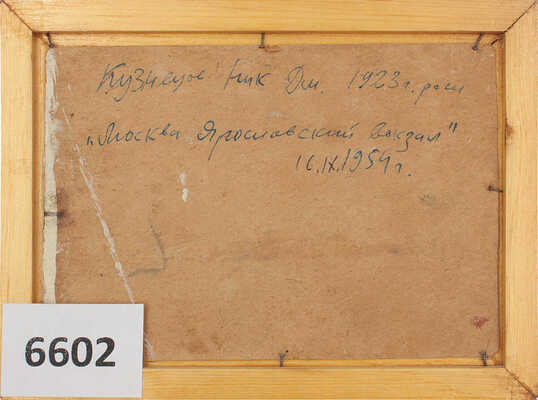 Кузнецов Ник Дм. 1923г. рож
"Москва Ярославский вокзал"
16.IX.1954г.
6602